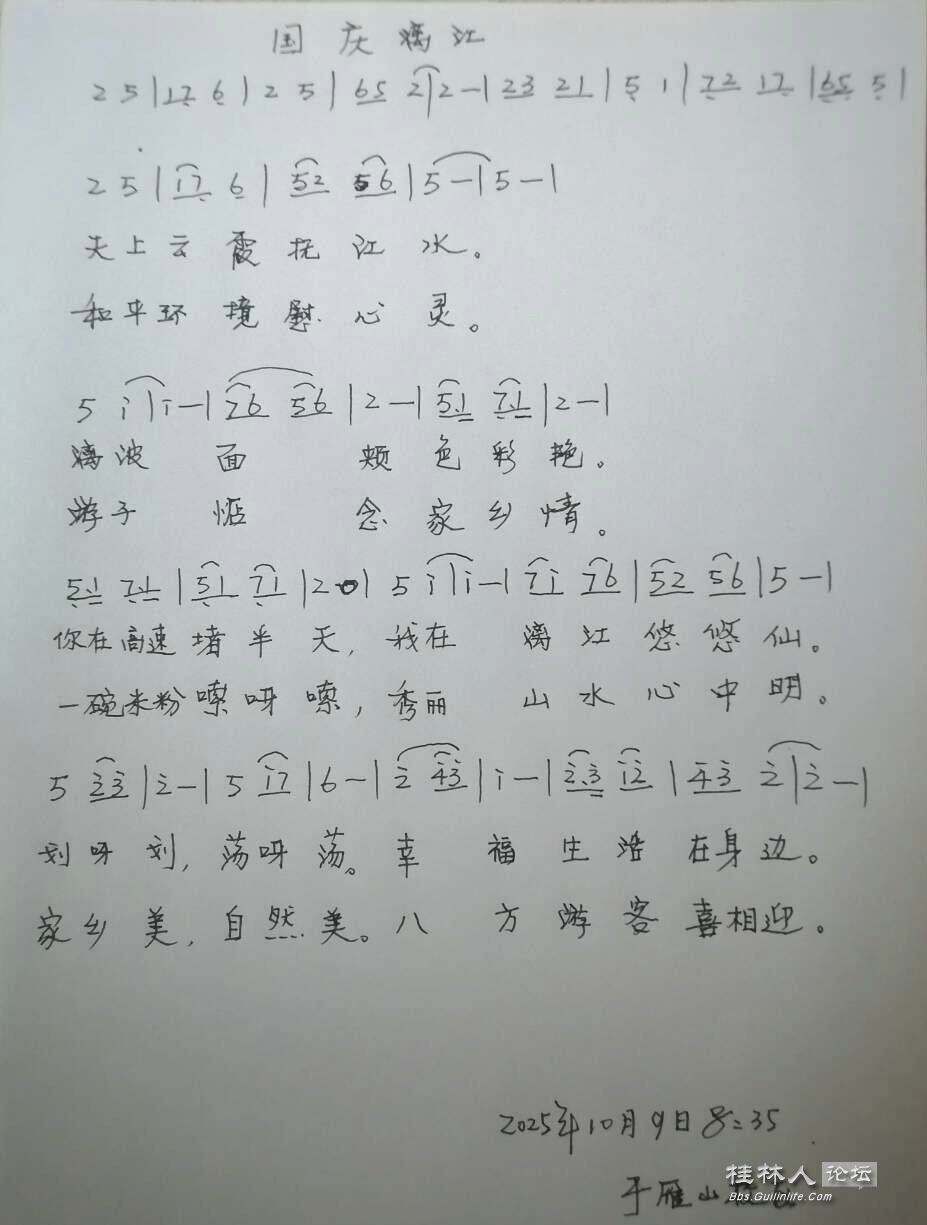 国庆漓江
2 5 | 17 6 | 2 5 | 65 2 | 2 - | 23 21 | 5 1 | 72 17 | 65 5 |
2 5 | 17 6 | 52 56 | 5 - | 5 - |
天上云霞抚江水。
和平环境慰心灵。
5 i | i - | 76 56 | 2 - | 51 71 | 2 - |
漓波面颊色彩艳。
游子惦念家乡情。
51 71 | 51 71 | 2 0 | 5 i | i - | 7i 76 | 52 56 | 5 - |
你在高速堵半天，我在漓江悠悠仙。
一碗米粉嗦呀嗦，秀丽山水心中明。
5 33 | 2 - | 5 i7 | 6 - | 2 43 | i - | 2.3 i2 | 43 2 | 2 - |
划呀划，荡呀荡。幸福生活在身边。
家乡美，自然美。八方游客喜相迎。
2025年10月9日8:35
于雁山
桂林人论坛
Bbs.Guilinlife.Com